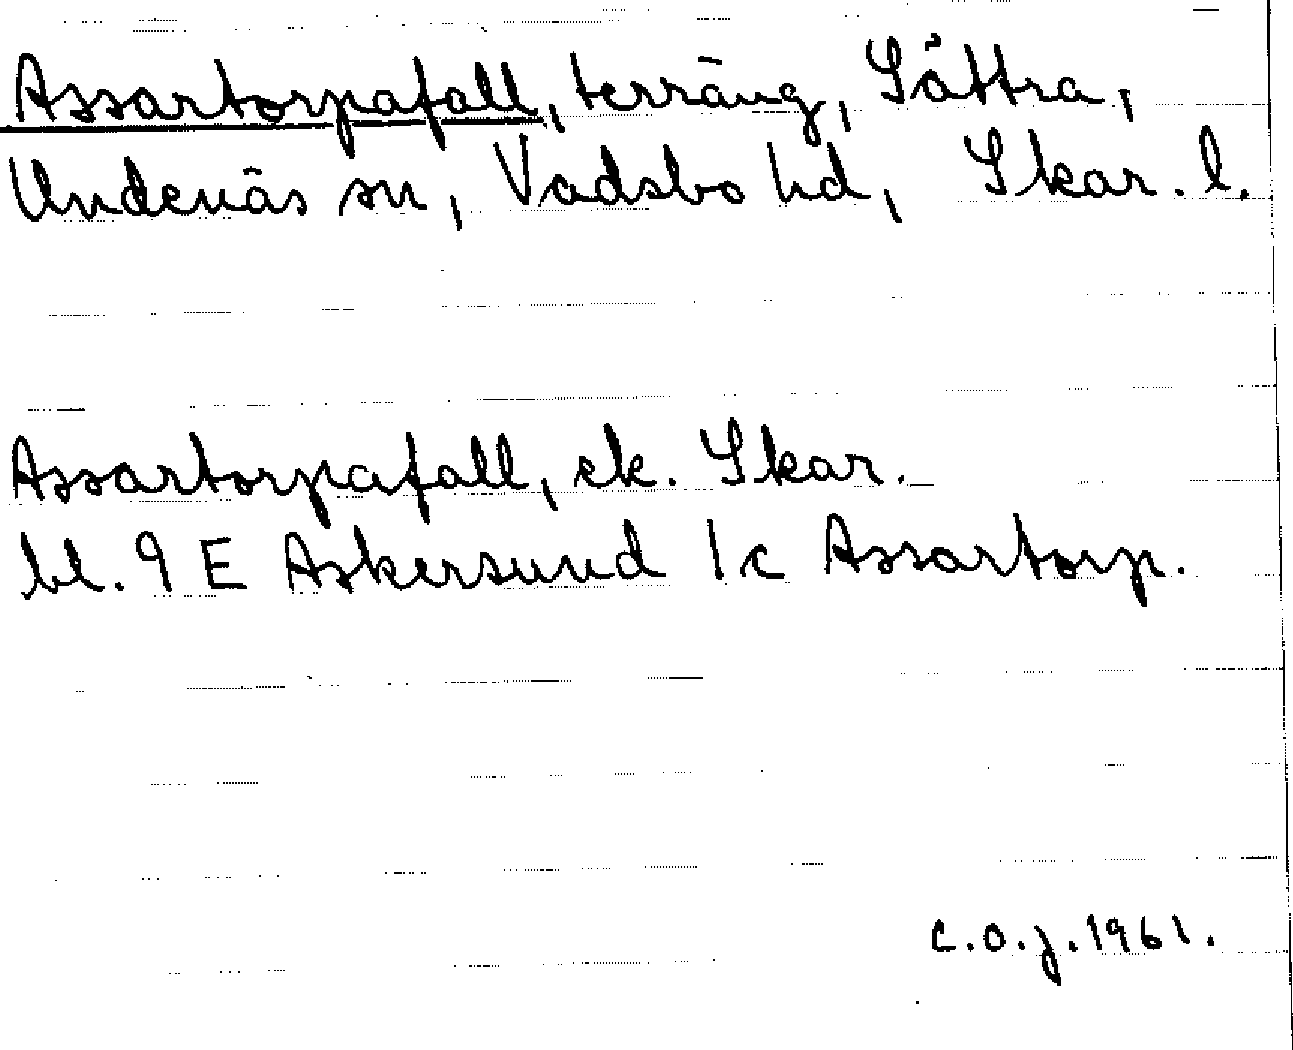 Assartorpafall, terräng, Såttra,
Undenäs sn, Vadsbo hd, Skar. l.
Assartorpafall, ek. Skar.
bl. 9 E Askersund 1 c Assartorp.
c.o.j. 1961.